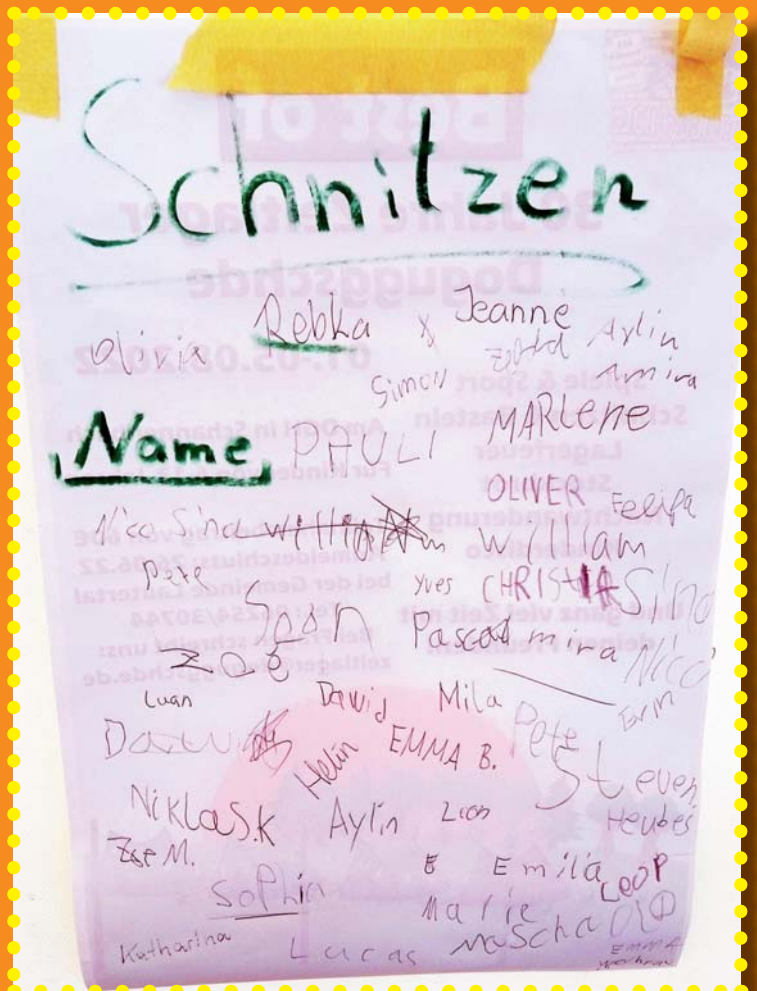 Schnitzen
Olivia Rebka x Jeanne Aylin
Simon Amira
Name PAULI MARLENE
OLIVER Felipa
Nico Sina William
Pete Yves CHRISTIA Sina
Sean Pascal mira Nico
Zoé
Luan David Mila Erin
Pete
Helin EMMA B. Steven
NiklaS.K Aylin Lion Heubes
Zoe M. E Emilia LeoP
Sophia Marie
Katharina Lucas MaScha
EMMA